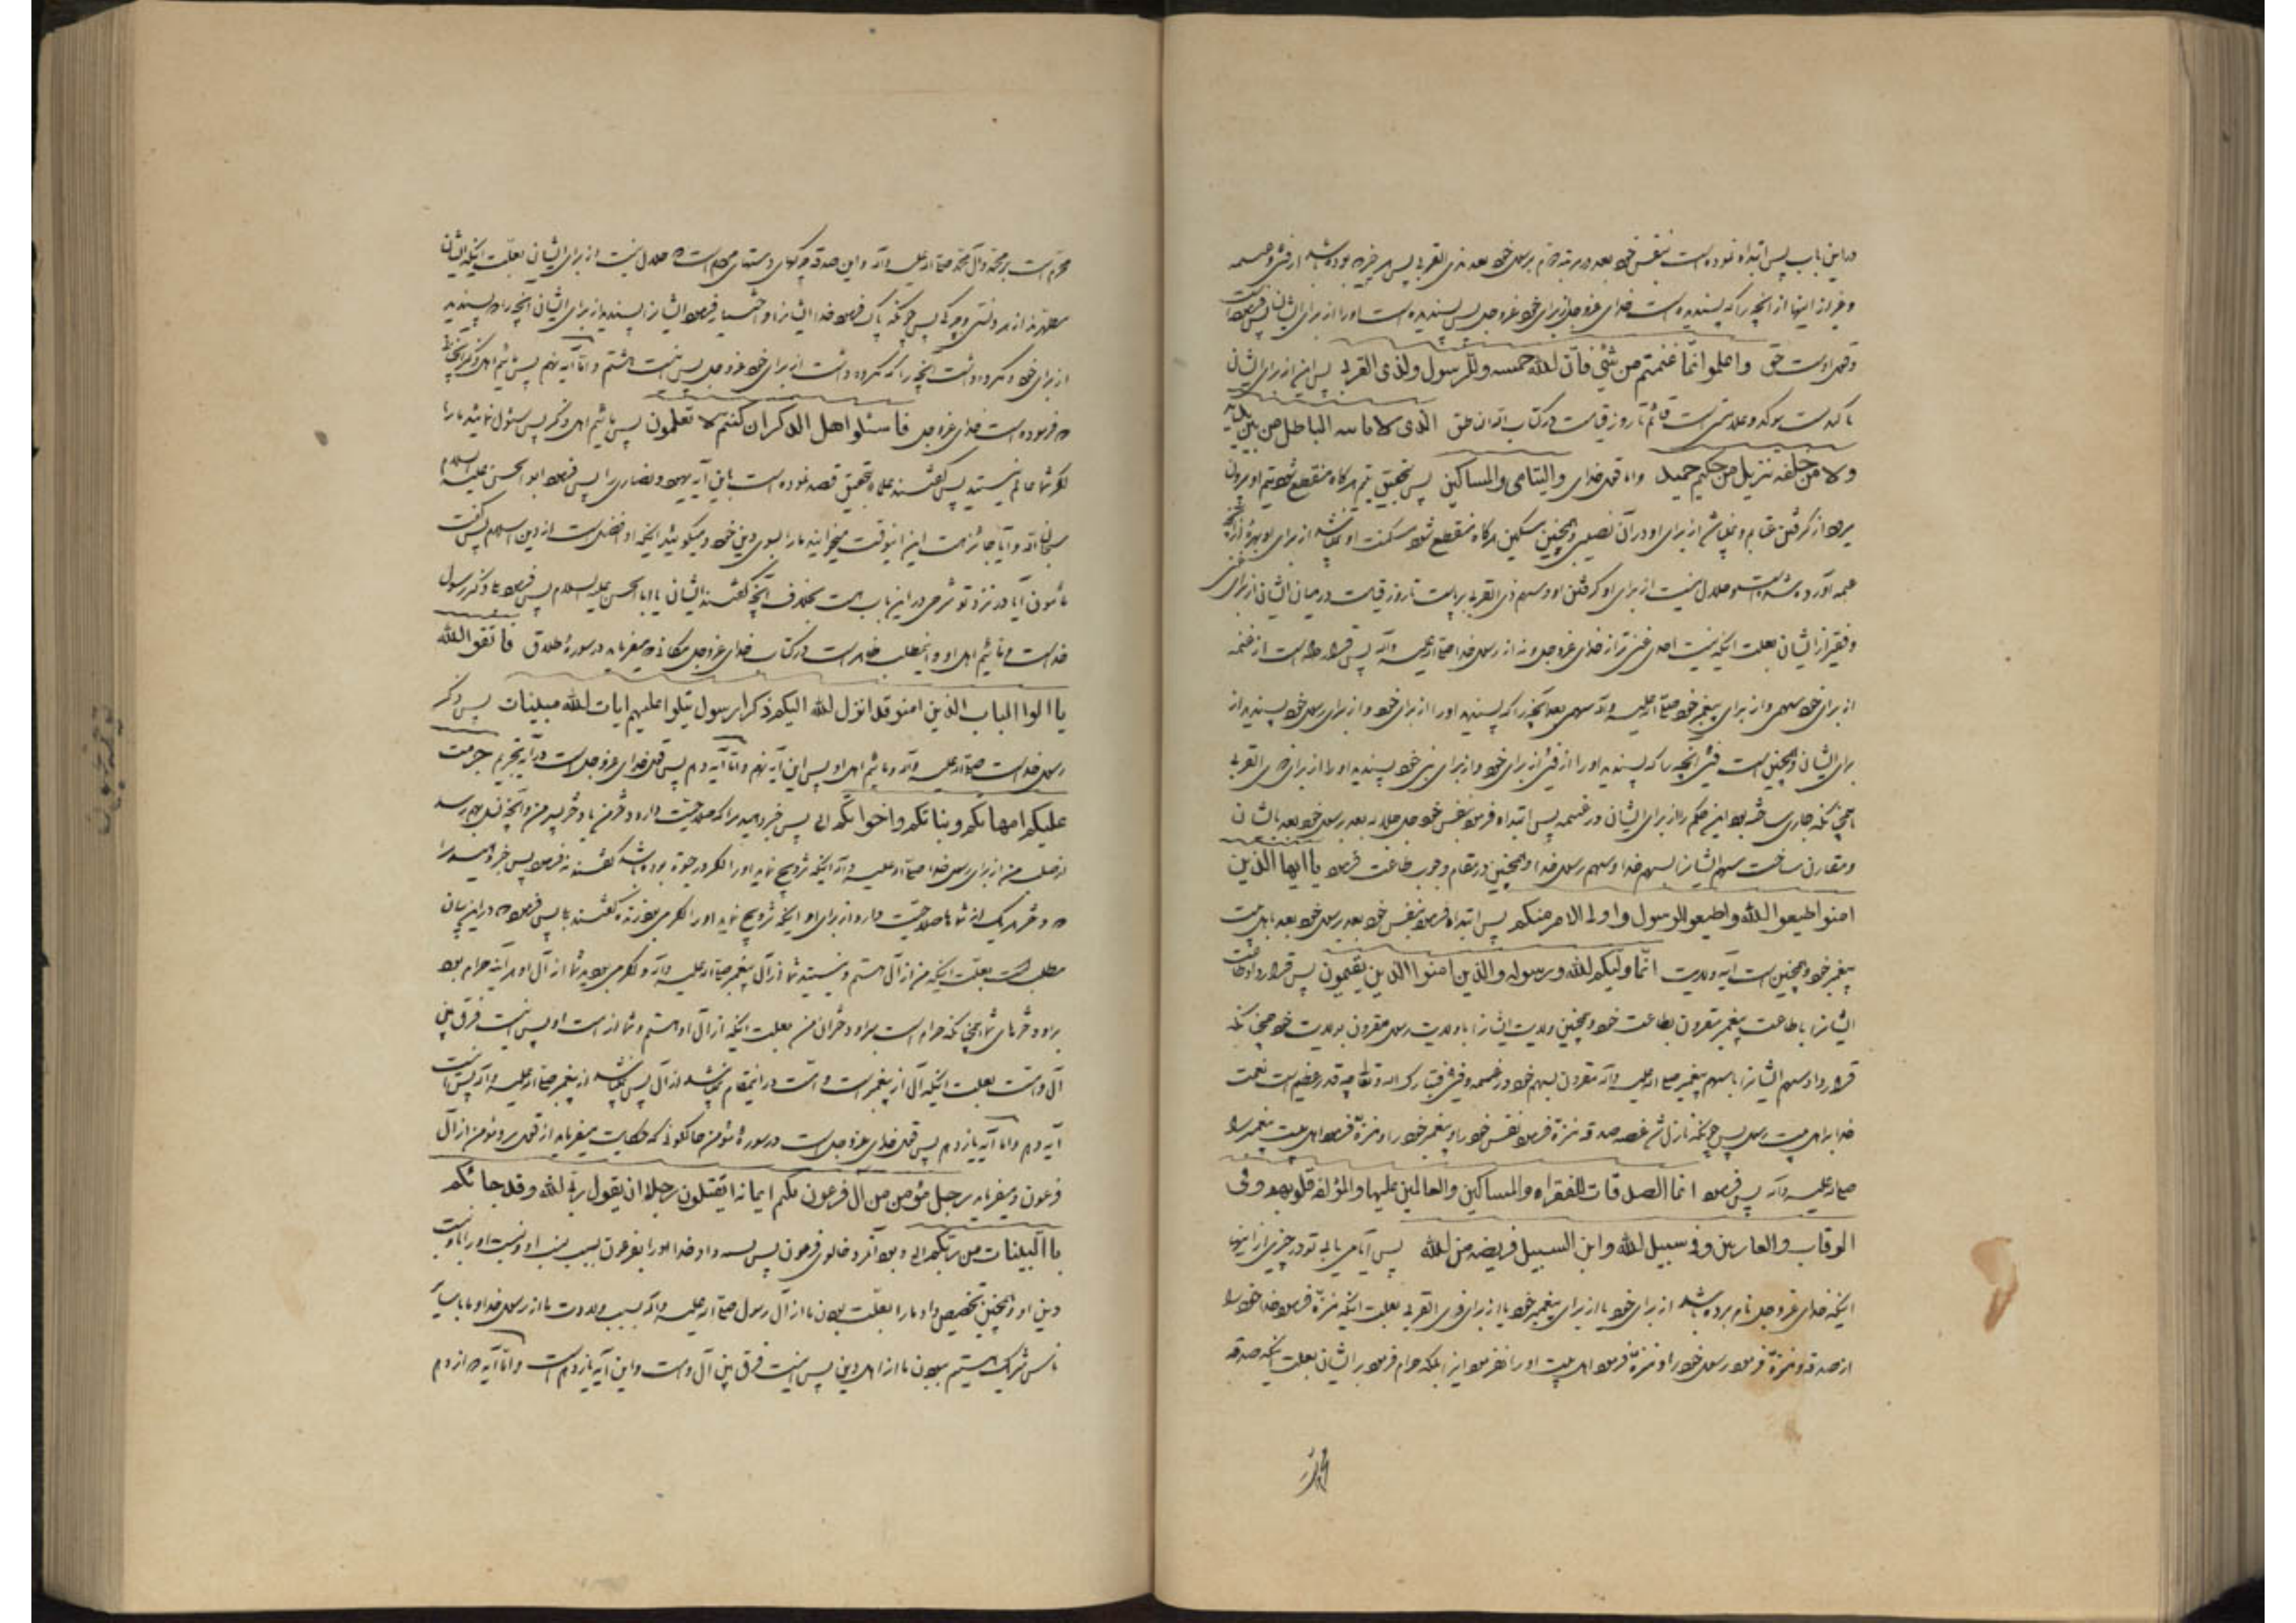 در این باب پس ابتداء نموده است بنفس خود بعد در مرتبه دوم برسول خود بعد بذی القربی پس هر چیزی که بوده باشد از فئ و غنیمه
و غیر از اینها از آنچه را که پسندیده است خدای عزوجل از برای خود عزوجل پس پسندیده است او را از برای ایشان پس فرموده است
و قول اوست حق واعلموا انّما غنمتم من شئ فانّ لله خمسه وللرسول ولذی القربی پس این از برای ایشان
تاکید است موکد و علامتی است قائم تا روز قیامت در کتاب الله ناطق الّذی لا یاتیه الباطل من بین یدیه
ولا من خلفه تنزیل من حکیم حمید و اما قول خدای والیتامی والمساکین پس بتحقیق یتیم هر گاه منقطع شود یتیم او بیرون
میرود از گرفتن غنایم و نمیباشد از برای او در آن نصیبی و همچنین مسکین هر گاه منقطع شود مسکنت او نمیباشد از برای او بهره از آنچه
غنیمه آورده شده است و حلال نیست از برای او گرفتن او و سهم ذی القربی برپاست تا روز قیامت در میان ایشان از برای غنی
و فقیر از ایشان بعلت اینکه نیست احدی غنی تر از خدای عزوجل و نه از رسول خدا صلی الله علیه وآله پس قرار داده است از غنیمه
از برای خود سهمی و از برای پیغمبر خود صلی الله علیه وآله سهمی پس آنچه را که پسندید او را از برای خود و از برای رسول خود پسندید از
برای ایشان و همچنین است فئ آنچه را که پسندید او را از فئ از برای خود و از برای نبی خود پسندید او را از برای ذی القربی
همچنانکه جاری ساخته بود این حکم را از برای ایشان در غنیمه پس ابتداء فرمود بنفس خود جل جلاله بعد برسول خود بعد بایشان
و مقارن ساخت سهم ایشانرا بسهم خدا و سهم رسول خدا و همچنین در مقام وجوب طاعت فرمود یا ایها الذین
امنوا اطیعوا الله واطیعو الرسول واولی الامر منکم پس ابتداء فرمود بنفس خود بعد برسول خود بعد باهل بیت
پیغمبر خود و همچنین است آیه ولایت انّما ولیکم لله ورسوله والذین امنوا الذین یقیمون پس قرار داد طاعت
ایشانرا با طاعت پیغمبر مقرون بطاعت خود و همچنین ولایت ایشانرا با ولایت رسول مقرون بولایت خود همچنانکه
قرار داد سهم ایشانرا با سهم پیغمبر صلی الله علیه وآله مقرون بسهم خود در غنیمه و فئ فتبارک الله و تعالی چه قدر عظیم است نعمت
خدا بر اهل بیت رسول پس چونکه نازل شد قصه صدقه منزه فرمود نفس خود را و پیغمبر خود را و منزه فرمود اهل بیت پیغمبر را
صلی الله علیه وآله پس فرمود انما الصدقات للفقراء والمساکین والعاملین علیها والمؤلفة قلوبهم وفی
الرقاب والغارمین وفی سبیل لله وابن السبیل فریضه من لله پس آیا می یابی تو در چیزی از اینها
اینکه خدای عزوجل نام برده باشد از برای خود یا از برای پیغمبر خود یا از برای ذوی القربی بعلت اینکه منزه فرمود خدا خود را
از صدقه و منزه فرمود رسول خود را و منزه فرمود اهل بیت او را نفرمود این را بلکه حرام فرمود بر ایشان بعلت اینکه صدقه
محرم است بر محمد و آل محمد صلی الله علیه وآله و این صدقه چرکهای دستهای مردم است که حلال نیست از برای ایشان بعلت اینکه ایشان
مطهرند از هر دنسی و چرکی پس چونکه پاک فرمود خدا ایشانرا و اختیار فرمود ایشانرا پسندید از برای ایشان آنچه را که پسندید
از برای خود و مکروه داشت آنچه را که مکروه داشت از برای خود عزوجل پس اینست هشتم و امّا آیه نهم پس مائیم اهل ذکر آنچنانی
که فرموده است خدای عزوجل فاسئلوا اهل الذکر ان کنتم لا تعلمون پس مائیم اهل ذکر پس سئول نمائید ما را
اگر شما عالم نیستید پس گفتند علماء بتحقیق قصد نموده است باین آیه یهود و نصاری را پس فرمود ابو الحسن علیه السلام
سبحان الله و آیا جائز است این اینوقت میخوانند ما را بسوی دین خود و میگویند اینکه او افضل است از دین اسلام پس گفت
مأمون آیا در نزد تو شرحی در این باب هست بخلاف آنچه گفتند ایشان یا ابا الحسن علیه السلام پس فرمود بلی ذکر رسول
خداست و مائیم اهل او و اینمطلب ظاهر است در کتاب خدای عزوجل مکانی که میفرماید در سورهٔ طلاق فاتقو الله
یا اولوا الباب الذین امنو قد انزل لله الیکم ذکرا رسول یتلوا علیهم ایات لله مبینات پس ذکر
رسول خداست صلی الله علیه وآله و مائیم اهل او پس این آیه نهم و امّا آیه دهم پس قول خدای عزوجل است در آیه تحریم حرمت
علیکم امهاتکم وبناتکم واخواتکم الی پس خبر دهید مرا که صلاحیت دارد دختر من یا دختر پسر من و آنچه نسل بهم رسد
از صلب من از برای رسول خدا صلی الله علیه وآله اینکه تزویج نماید او را اگر در حیوة بوده باشد گفتند نه فرمود پس خبر دهید مرا
که دختر هر یک از شماها صلاحیت دارد از برای او اینکه تزویج نماید او را اگر می بود زنده گفتند بلی پس فرمود که در این بیان
مطلب است بعلت اینکه من از آل هستم و نیستید شما از آل پیغمبر صلی الله علیه وآله و اگر می بودید شما از آل او هر آینه حرام بود
بر او دخترهای شما همچنانکه حرام است بر او دختران من بعلت اینکه از آل او هستم و شما از امت او پس اینست فرق بین
آل و امّت بعلت اینکه آل از پیغمبر است و امّت در اینمقام نمیباشد از آل پس نمیباشد از پیغمبر صلی الله علیه وآله پس اینست
آیه دهم و امّا آیه یازدهم پس قول خدای عزوجل است در سورهٔ مؤمن حالکونی که حکایت میفرماید از قول مرد مؤمن از آل
فرعون و میفرماید رجل مؤمن من ال فرعون یکتم ایمانه اتقتلون رجلا ان یقول ربی لله وقد جائکم
باالبینات من ربکم الی و بود آنمرد خالوی فرعون پس نسبت داد خدا او را بفرعون بسبب نسب او و نسبت او را با اوست
دین او و همچنین تخصیص داد ما را بعلّت بودن ما از آل رسول صلی الله علیه وآله بسبب ولادت ما از رسول خدا و ما با سایر
ناس شریک هستیم ببودن ما از اهل دین پس اینست فرق بین آل و امت و این آیه یازدهم است و امّا آیه دوازدهم